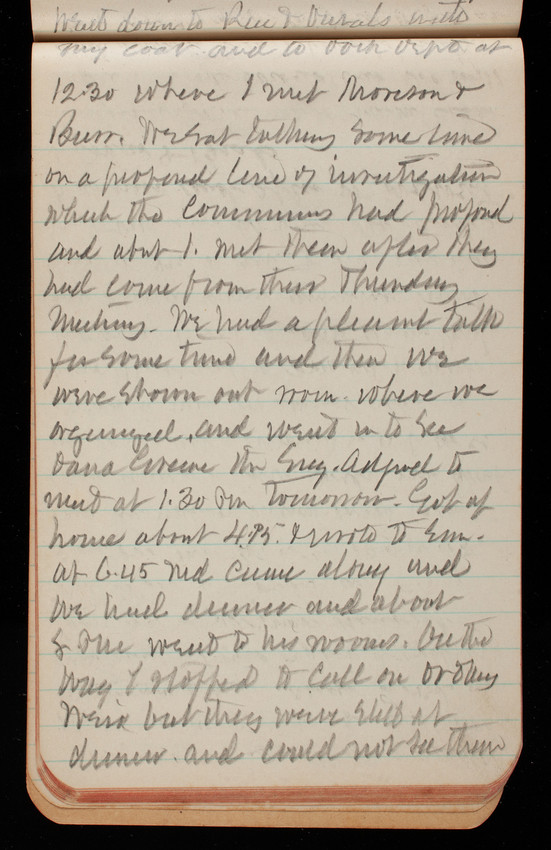 Went down to Reed & Durals with
my coat and to Dock Dept at
12.30 where I met Morison &
Burr. We sat talking some time
on a proposed line of investigation
which the Commrs had proposed
and about 1. met them after they
had come from their Thursday
Meeting. We had a pleasant talk
for some time and then we
were shown our room. where we
organized, and went in to see
Greene the Eng. Adjd to
meet at 1.30 Pm tomorrow. Got up
home about 4.P5. I wrote to Em.
at 6.45 Ned came along and
we had dinner and about
8 we went to his rooms. On the
way I stopped to call on
Weir but they were still at
dinner. and could not see them